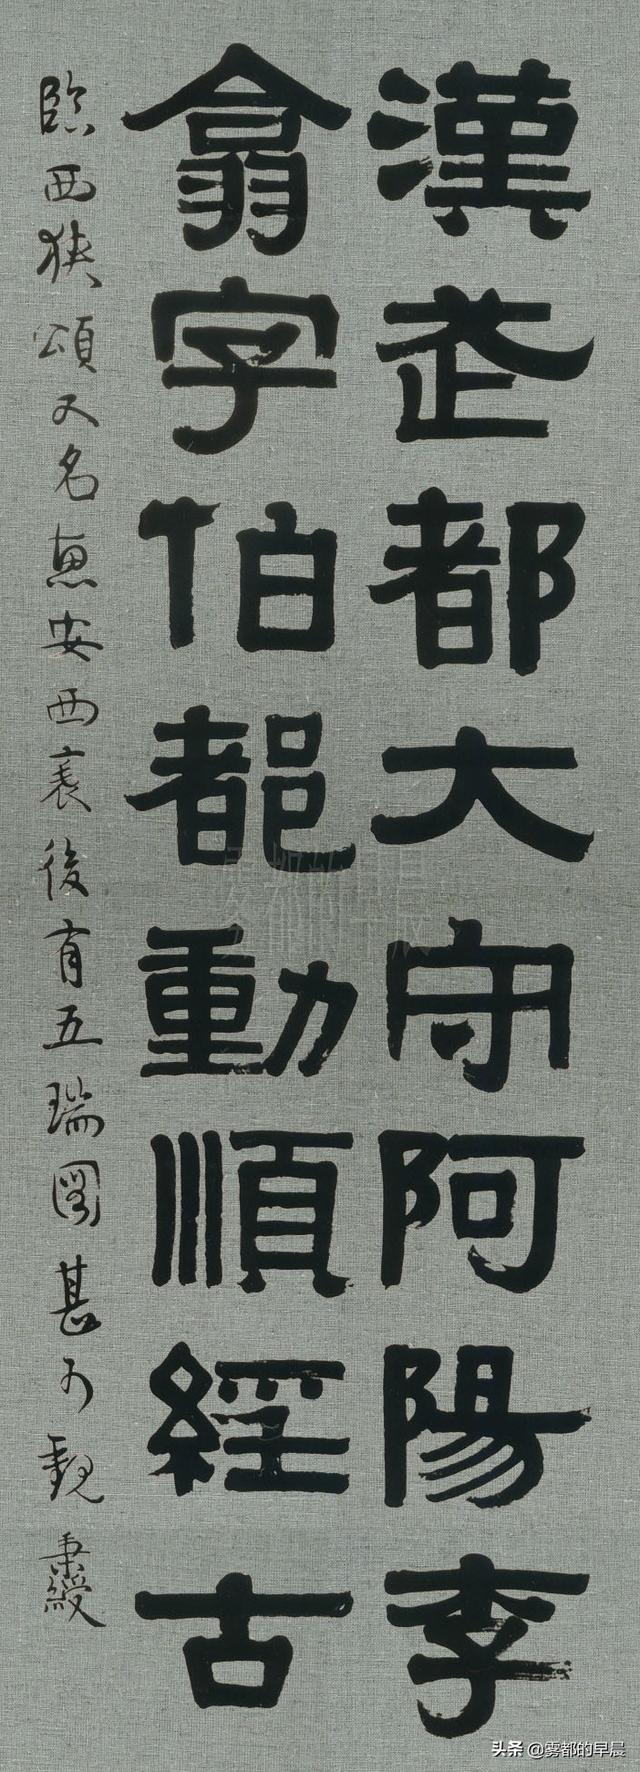 漢武都大守阿陽李
翕字伯都動順經古
臨西狹頌又名惠安西表後有五瑞圖甚可觀秉綬
雾都的早晨
头条 @雾都的早晨